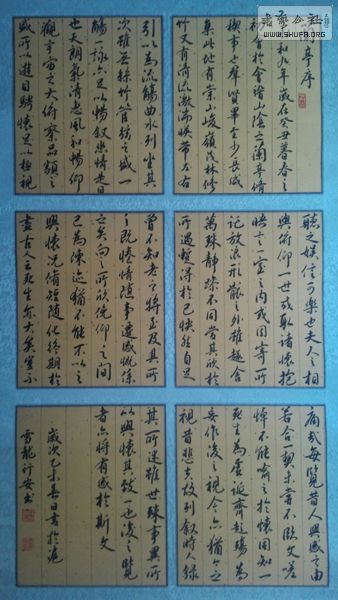 蘭亭序
永和九年歲在癸丑暮春之
初會於會稽山陰之蘭亭脩
禊事也羣賢畢至少長咸
集此地有崇山峻嶺茂林脩
竹又有清流激湍映帶左右
引以為流觴曲水列坐其
次雖無絲竹管絃之盛一
觴一詠亦足以暢敘幽情是日
也天朗氣清惠風和暢仰
觀宇宙之大俯察品類之
盛所以遊目騁懷足以極視
聽之娛信可樂也夫人之相
與俯仰一世或取諸懷抱
悟言一室之內或因寄所
託放浪形骸之外雖趣舍
萬殊靜躁不同當其欣於
所遇暫得於己快然自足
曾不知老之將至及其所
之既惓情隨事遷感慨係
之矣向之所欣俛仰之間
已為陳迹猶不能不以之
興懷況脩短隨化終期於
盡古人云死生亦大矣豈不
痛哉每覽昔人興感之由
若合一契未嘗不臨文嗟
悼不能喻之於懷固知一
死生為虛誕齊彭殤為
妄作後之視今亦猶今之
視昔悲夫故列敘時人錄
其所述雖世殊事異所
以興懷其致一也後之覽
者亦將有感於斯文
歲次乙未春日書於滬
www.shufa.org